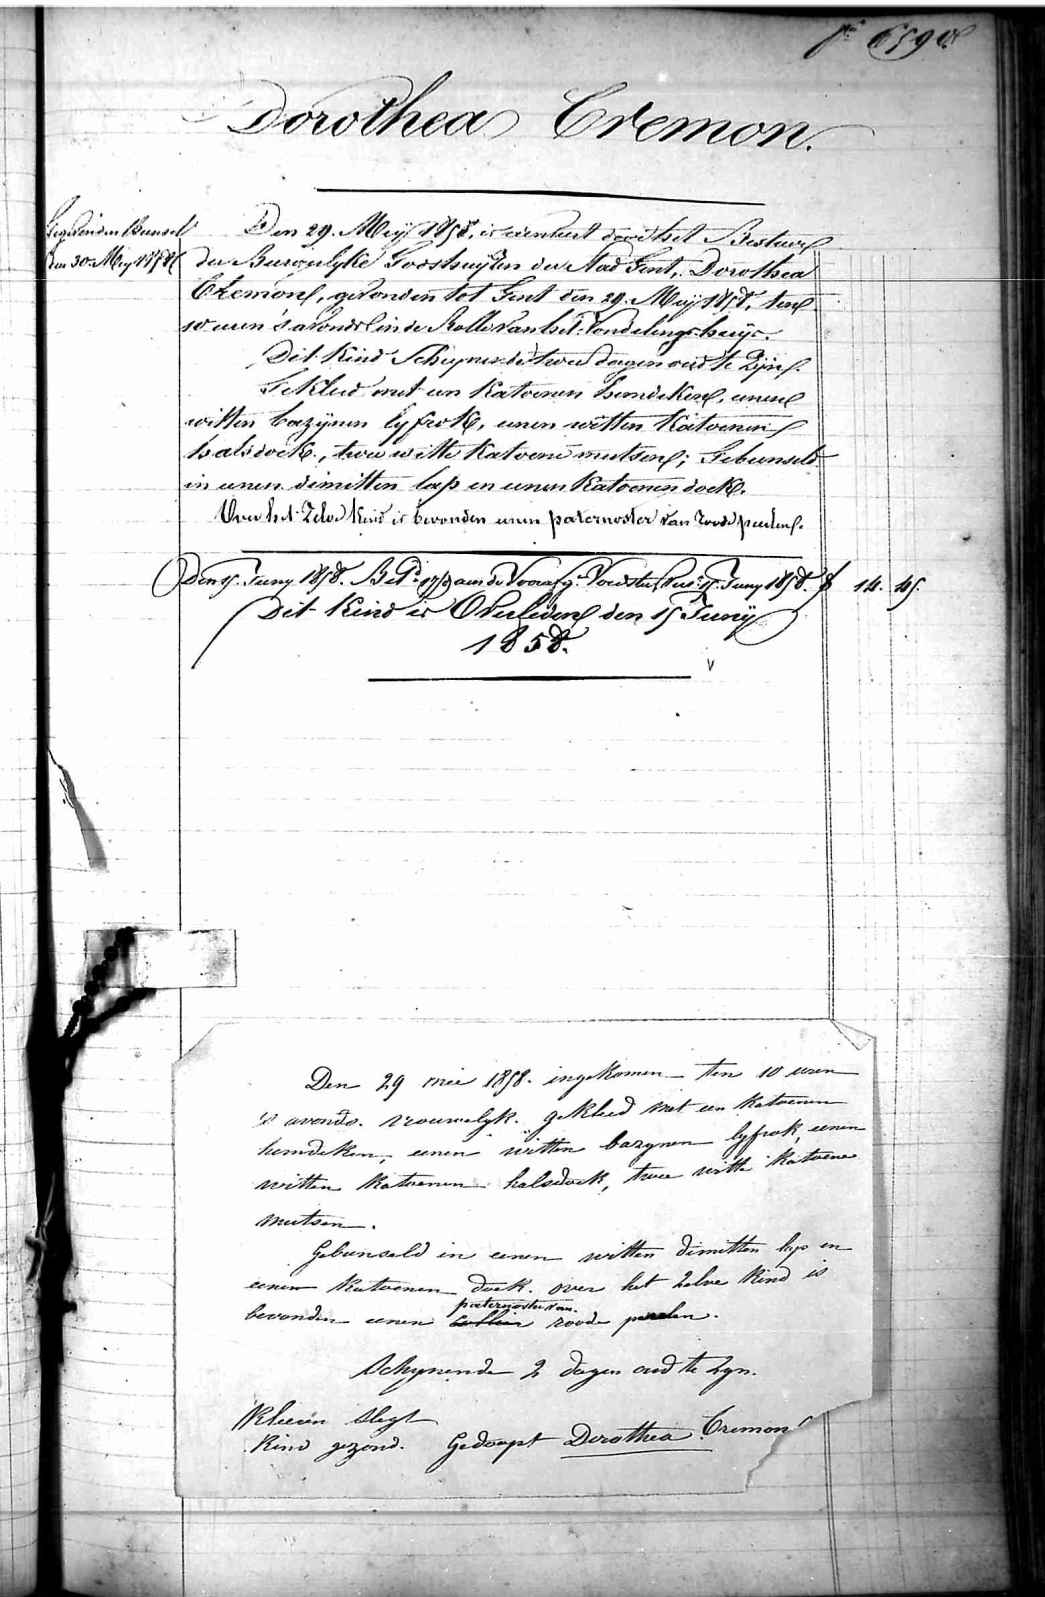 Dorothea Cremon.
den 30 Mey 1858
Den 29. Meij 1858. is aenveert door het Bestuer
der Burgerlyke Godshuijzen der Stad Gent, Dorothea
Cremon, gevonden tot Gent den 29. Meij 1858, ten
10 uren 's avonds in de Rolle van het Vondelingshuijs.
Dit Kind Scheynende twee dagen oud te Zijn.
Gekleed met een Katoenen hemdeken, eenen
witten bazijnen lyfrok, eenen witten Katoenen
halsdoek, twee witte Katoene mutsen; Gebunseld
in eenen dimitten lap en eenen Katoenen doek.
Over het Zelve Kind is bevonden eenen paternoster van roode peerlen.
Juny 1858. aen de Voorsch. Voedster Juny 1858. f 14. 45.
Dit Kind is Overleden den 15 Junij
1858.
Den 29 mei 1858. ingekomen ten 10 uren
's avonds. vrouwelyk. gekleed met een Katoenen
hemdeken, eenen witten bazynen lyfrok, eenen
witten Katoenen halsdoek, twee witte Katoene
mutsen.
Gebunseld in eenen witten dimitten lap en
eenen Katoenen doek. over het Zelve Kind is
paternoster van
bevonden eenen collier roode peerlen.
Schynende 2 dagen oud te Zyn.
Kleeren slegt
Kind gezond. Gedoopt Dorothea Cremon